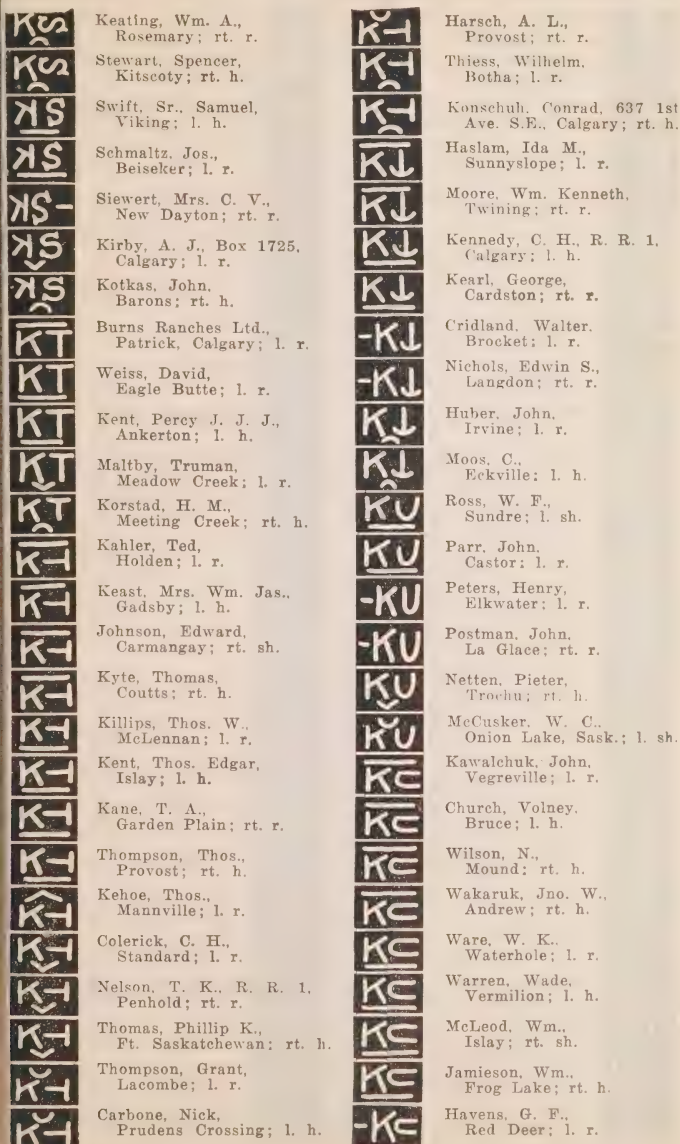 Keating, Wm. A.,
Rosemary; rt. r.
Stewart, Spencer,
Kitscoty; rt. h.
Swift, Sr., Samuel,
Viking; l. h.
Schmaltz. Jos.,
Beiseker; l. r.
Siewert, Mrs. C. V.,
New Dayton; rt. r.
Kirby, A. J., Box 1725,
Calgary; l. r.
Kotkas, John.
Barons; rt. h.
Burns Ranches Ltd.,
Patrick, Calgary; l. r.
Weiss, David,
Eagle Butte; l. r.
Kent, Percy J. J. J.,
Ankerton; l. h.
Maltby, Truman,
Meadow Creek; l. r.
Korstad, H. M.,
Meeting Creek; rt. h.
Kahler, Ted,
Holden; l. r.
Keast, Mrs. Wm. Jas.,
Gadsby; l. h.
Johnson, Edward,
Carmangay; rt. sh.
Kyte, Thomas,
Coutts; rt. h.
Killips, Thos. W.,
McLennan; l. r.
Kent, Thos. Edgar,
Islay; l. h.
Kane, T. A.,
Garden Plain; rt. r.
Thompson, Thos.,
Provost; rt. h.
Kehoe, Thos.,
Mannville; l. r.
Colerick, C. H.,
Standard; l. r.
Nelson, T. K., R. R. 1,
Penhold; rt. r.
Thomas, Phillip K.,
Ft. Saskatchewan; rt. h.
Thompson, Grant,
Lacombe; l. r.
Carbone, Nick,
Prudens Crossing; l. h.
Harsch, A. L.,
Provost; rt. r.
Thiess, Wilhelm,
Botha; l. r.
Konschuh, Conrad, 637 1st
Ave. S.E., Calgary; rt. h.
Haslam, Ida M.,
Sunnyslope; l. r.
Moore, Wm. Kenneth,
Twining; rt. r.
Kennedy, C. H., R. R. 1,
Calgary; l. h.
Kearl, George,
Cardston; rt. r.
Cridland, Walter.
Brocket; l. r.
Nichols, Edwin S.,
Langdon; rt. r.
Huber, John.
Irvine; l. r.
Moos, C.,
Eckville; l. h.
Ross, W. F.,
Sundre; l. sh.
Parr, John.
Castor; l. r.
Peters, Henry,
Elkwater; l. r.
Postman, John,
La Glace; rt. r.
Netten, Pieter,
Trochu; rt. h.
McCusker. W. C..
Onion Lake, Sask.; l. sh.
Kawalchuk, John,
Vegreville; l. r.
Church, Volney.
Bruce; l. h.
Wilson, N.,
Mound; rt. h.
Wakaruk, Jno. W.,
Andrew; rt. h.
Ware, W. K..
Waterhole; l. r.
Warren, Wade,
Vermilion; l. h.
McLeod, Wm.,
Islay; rt. sh.
Jamieson, Wm..
Frog Lake; rt. h.
Havens, G. F.,
Red Deer; l. r.